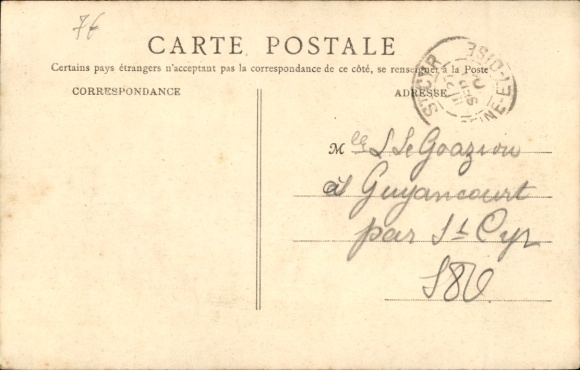 7€
CARTE POSTALE
Certains pays étrangers n'acceptant pas la correspondance de ce côté, se renseigner à la Poste
CORRESPONDANCE
ADRESSE
ST CYR SEINE-ET-OISE
Mlle L Le Goaziou
à Guyancourt
par St Cyr
S&O